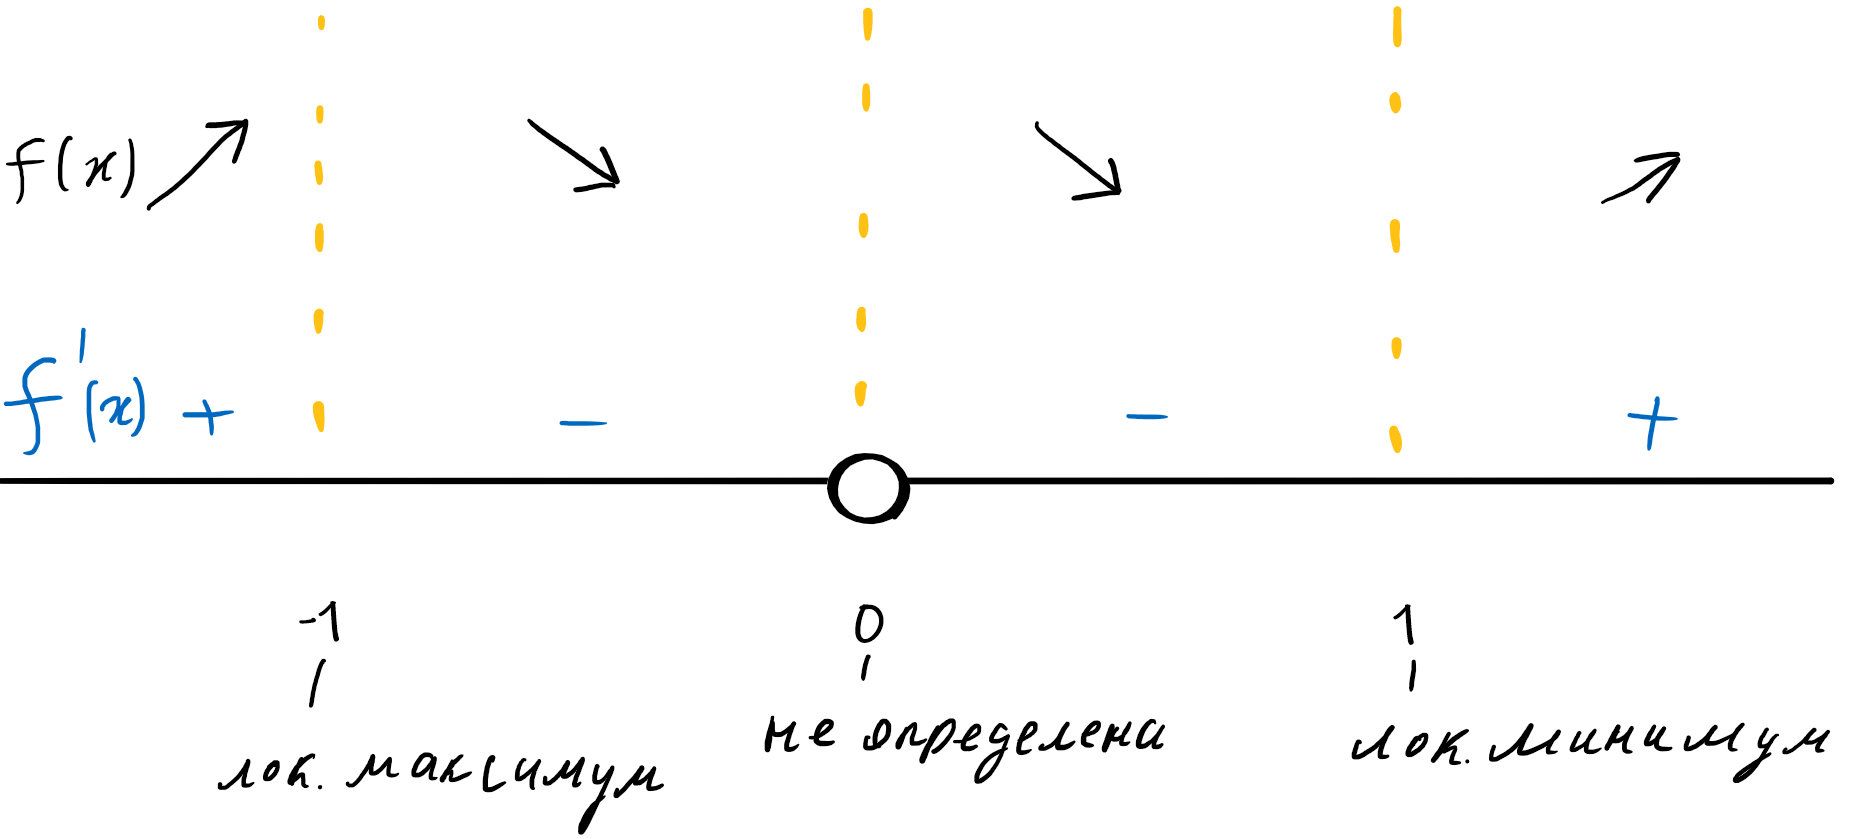 f(x)
f'(x) + - - +
-1 0 1
лок. максимум не определена лок. минимум